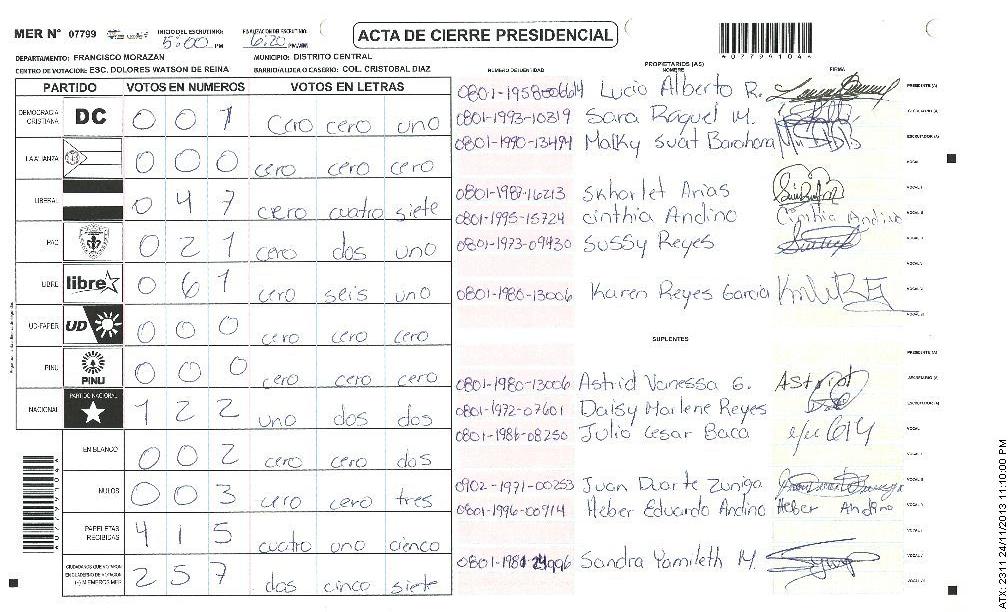 MER N° 07799 INICIO DEL ESCRUTINIO: 5:00 PM FINALIZACION DE ESCRUTINIO: 6:20 PM/AM ACTA DE CIERRE PRESIDENCIAL
4077991044
DEPARTAMENTO: FRANCISCO MORAZAN MUNICIPIO: DISTRITO CENTRAL
CENTRO DE VOTACION: ESC. DOLORES WATSON DE REINA BARRIO/ALDEA O CASERIO: COL. CRISTOBAL DIAZ
PARTIDO VOTOS EN NUMEROS VOTOS EN LETRAS
DEMOCRACIA CRISTIANA DC 0 0 1 Cero cero uno
LA ALIANZA 0 0 0 cero cero cero
LIBERAL 0 4 7 cero cuatro siete
PAC 0 2 1 cero dos uno
LIBRE libre 0 6 1 cero seis uno
UD-FAPER UD 0 0 0 cero cero cero
PINU PINU 0 0 0 cero cero cero
NACIONAL PARTIDO NACIONAL 1 2 2 uno dos dos
EN BLANCO 0 0 2 cero cero dos
NULOS 0 0 3 cero cero tres
PAPELETAS RECIBIDAS 4 1 5 cuatro uno cienco
CIUDADANOS QUE VOTARON EN CUADERNO DE VOTACION (+) MIEMBROS MER 2 5 7 dos cinco siete
4077991044
NUMERO DE IDENTIDAD PROPIETARIOS (AS) NOMBRE FIRMA
0801-1958-06614 Lucio Alberto R. PRESIDENTE (A)
0801-1993-10319 Sara Raquel M. SECRETARIO (A)
0801-1990-13494 Malky Suat Barahona ESCRUTADOR (A)
VOCAL I
0801-1987-16213 Skharlet Arias VOCAL II
0801-1995-15724 Cinthia Andino Cinthia Andino VOCAL III
0801-1973-09430 Sussy Reyes
0801-1980-13006 Karen Reyes Garcia
SUPLENTES
PRESIDENTE (A)
0801-1980-13006 Astrid Vanessa G. Astript SECRETARIO (A)
0801-1972-07601 Daisy Marlene Reyes ESCRUTADOR (A)
0801-1986-08250 Julio Cesar Baca VOCAL I
0902-1971-00253 Juan Duarte Zuniga
0801-1996-00914 Heber Eduardo Andino Heber Andino
Sandra Yamileth M.
ATX: 2311 24/11/2013 11:10:00 PM